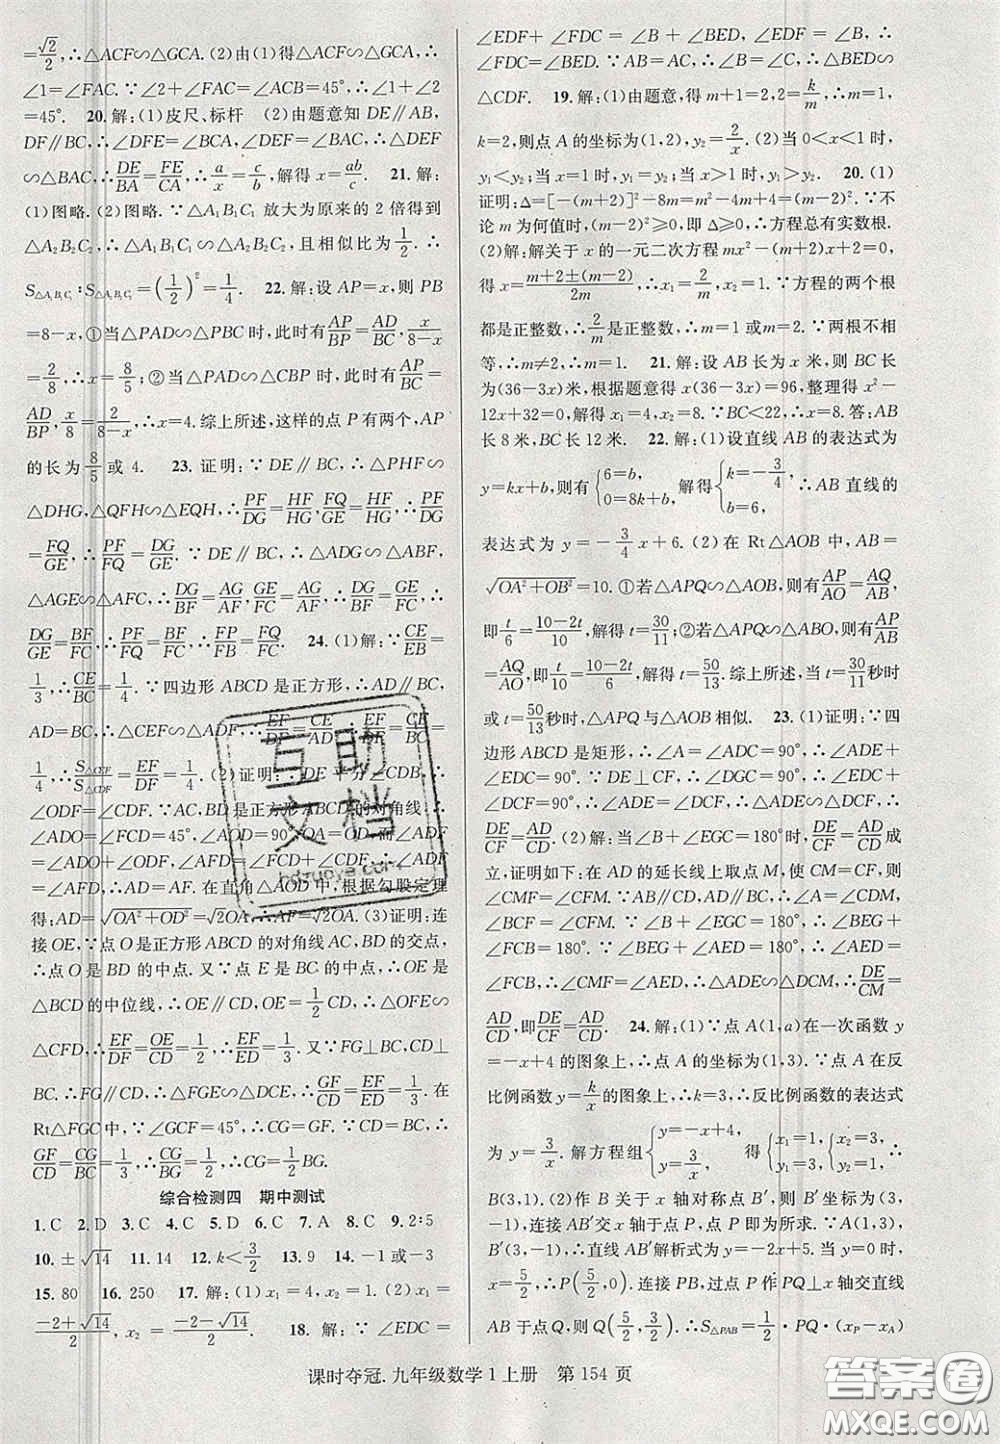 =√2/2,∴△ACF∽△GCA. (2)由(1)得△ACF∽△GCA,∴
∠1=∠FAC. ∵∠2+∠FAC=∠BCA=45°,∴∠1+∠2=
45°. 20. 解:(1)皮尺、标杆 (2)由题意知 DE∥AB,
DF∥BC,∴∠DFE=∠BCA,∠DEF=∠BAC,∴△DEF
∽△BAC,∴DE/BA=FE/CA,∴a/x=c/b,解得 x=ab/c. 21. 解:
(1)图略. (2)图略. ∵△A₁B₁C₁ 放大为原来的 2 倍得到
△A₂B₂C₂,∴△A₁B₁C₁∽△A₂B₂C₂,且相似比为1/2. ∴
S△A₁B₁C₁:S△A₂B₂C₂=(1/2)²=1/4. 22. 解:设 AP=x,则 PB
=8-x,①当△PAD∽△PBC 时,此时有AP/BP=AD/BC,x/(8-x)
=2/8,∴x=8/5;②当△PAD∽△CBP 时,此时有AP/BC=
AD/BP,x/8=2/(8-x),∴x=4. 综上所述,这样的点 P 有两个,AP
的长为8/5或 4. 23. 证明:∵DE∥BC,∴△PHF∽
△DHG,△QFH∽△EQH,∴PF/DG=HF/HG,FQ/GE=HF/HG,∴PF/DG=
FQ/GE,∴PF/FQ=DG/GE. ∵DE∥BC,∴△ADG∽△ABF,
△AGE∽△AFC,∴DG/BF=AG/AF,GE/FC=AG/AF,∴DG/BF=GE/FC,∴
DG/GE=BF/FC,∴PF/FQ=BF/FC,∴FP/FB=FQ/FC. 24. (1)解:∵CE/EB=
1/3,∴CE/BC=1/4. ∵四边形 ABCD 是正方形,∴AD∥BC,
AD=BC,∴△CEF∽△ADF,∴EF/DF=CE/AD,∴EF/DF=CE/BC=
1/4,∴S△CEF/S△CDF=EF/DF=1/4. (2)证明:∵DE 平分∠CDB,∴
∠ODF=∠CDF. ∵AC,BD 是正方形 ABCD 的对角线,∴
∠ADO=∠FCD=45°,∠AOD=90°,OA=OD. ∴∠ADF=
∠ADO+∠ODF,∠AFD=∠FCD+∠CDF,∴∠ADF=
∠AFD,∴AD=AF. 在直角△AOD 中,根据勾股定理
得:AD=√(OA²+OD²)=√2OA,∴AF=√2OA. (3)证明:连
接 OE,∵点 O 是正方形 ABCD 的对角线 AC,BD 的交点,
∴点 O 是 BD 的中点. 又∵点 E 是 BC 的中点,∴OE 是
△BCD 的中位线,∴OE∥CD,OE=1/2CD,∴△OFE∽
△CFD,∴EF/DF=OE/CD=1/2,∴EF/ED=1/3. 又∵FG⊥BC,CD⊥
BC,∴FG∥CD,∴△FGE∽△DCE,∴GF/CD=EF/ED=1/3. 在
Rt△FGC 中,∵∠GCF=45°,∴CG=GF. 又∵CD=BC,∴
GF/CD=CG/BC=1/3,∴CG/BG=1/2,∴CG=1/2BG.
综合检测四 期中测试
1. C 2. D 3. C 4. C 5. C 6. D 7. A 8. C 9. 2:5
10. ±√14 11. 14 12. k<3/2 13. 9 14. -1 或-3
15. 80 16. 250 17. 解:(1)x₁=4,x₂=1. (2)x₁=
(-2+√14)/2,x₂=(-2-√14)/2. 18. 解:∵∠EDC=
∠EDF+∠FDC=∠B+∠BED,又∵∠EDF=∠B,∴
∠FDC=∠BED,∵AB=AC,∴∠B=∠C,∴△BDE
∽△CDF. 19. 解:(1)由题意,得 m+1=2,2=k/m,∴m=1,
k=2,则点 A 的坐标为(1,2),y₂=2/x. (2)当 0<x<1 时,
y₁<y₂;当 x=1 时,y₁=y₂;当 x>1 时,y₁>y₂. 20. (1)
证明:Δ=[-(m+2)]²-8m=m²-4m+4=(m-2)². ∵不
论 m 为何值时,(m-2)²≥0,即 Δ≥0,∴方程总有实数根.
(2)解:解关于 x 的一元二次方程 mx²-(m+2)x+2=0,
得 x=(m+2±(m-2))/2m,∴x₁=2/m,x₂=1. ∵方程的两个根
都是正整数,∴2/m是正整数,∴m=1 或 m=2. ∵两根不相
等,∴m≠2,∴m=1. 21. 解:设 AB 长为 x 米,则 BC 长
为(36-3x)米,根据题意得 x(36-3x)=96,整理得 x²-
12x+32=0,解得 x₁=4,x₂=8. ∵BC<22,∴x=8. 答:AB
长 8 米,BC 长 12 米. 22. 解:(1)设直线 AB 的表达式为
y=kx+b,则有{6=b, 0=8k+b, 解得{k=-3/4, b=6, ∴AB 直线的
表达式为 y=-3/4x+6. (2)在 Rt△AOB 中,AB=
√(OA²+OB²)=10. ①若△APQ∽△AOB,则有AP/AO=AQ/AB,
即t/6=(10-2t)/10,解得 t=30/11;②若△APQ∽△ABO,则有AP/AB
=AQ/AO,即t/10=(10-2t)/6,解得 t=50/13. 综上所述,当 t=30/11秒时
或 t=50/13秒时,△APQ 与△AOB 相似. 23. (1)证明:∵四
边形 ABCD 是矩形,∴∠A=∠ADC=90°,∴∠ADE+
∠EDC=90°. ∵DE⊥CF,∴∠DGC=90°,∴∠EDC+
∠DCF=90°,∴∠ADE=∠DCF,∴△ADE∽△DCF,∴
DE/CF=AD/CD. (2)解:当∠B+∠EGC=180°时,DE/CF=AD/CD成
立,证明如下:在 AD 的延长线上取点 M,使 CM=CF,则
∠CMF=∠CFM. ∵AB∥CD,∴∠A=∠CDM. ∵AD∥BC,
∴∠BCF=∠CFM. ∵∠B+∠EGC=180°,∴∠BEG+
∠FCB=180°. ∵∠BEG+∠AED=180°,∴∠AED=
∠FCB,∴∠CMF=∠AED,∴△ADE∽△DCM,∴DE/CM=
AD/CD,即DE/CF=AD/CD. 24. 解:(1)∵点 A(1,a)在一次函数 y
=-x+4 的图象上,∴点 A 的坐标为(1,3). ∵点 A 在反
比例函数 y=k/x的图象上,∴k=3,∴反比例函数的表达式
为 y=3/x. 解方程组{y=-x+4, y=3/x, 得{x₁=1, y₁=3,{x₂=3, y₂=1, ∴
B(3,1). (2)作 B 关于 x 轴对称点 B′,则 B′坐标为(3,
-1),连接 AB′交 x 轴于点 P,点 P 即为所求. ∵A(1,3),
B′(3,-1),∴直线 AB′解析式为 y=-2x+5. 当 y=0 时,
x=5/2,∴P(5/2,0). 连接 PB,过点 P 作 PQ⊥x 轴交直线
AB 于点 Q,则 Q(5/2,3/2). ∴S△PAB=1/2·PQ·(xP-xA)
课时夺冠. 九年级数学 1 上册 第 154 页
互助
文档
hdzuoye.com
答案圈
MXQE.COM